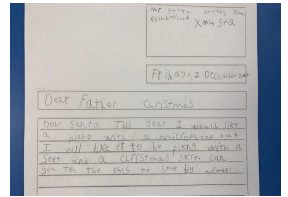 Mr Santa
XM4 5HQ
Friday, 2 December
Dear Father Christmas
Dear Santa This Year I would like
a piano with a microphone but
I will like it to be piang with a
Seet and a Christmas skin. Can
you Tell the elfs to stop by